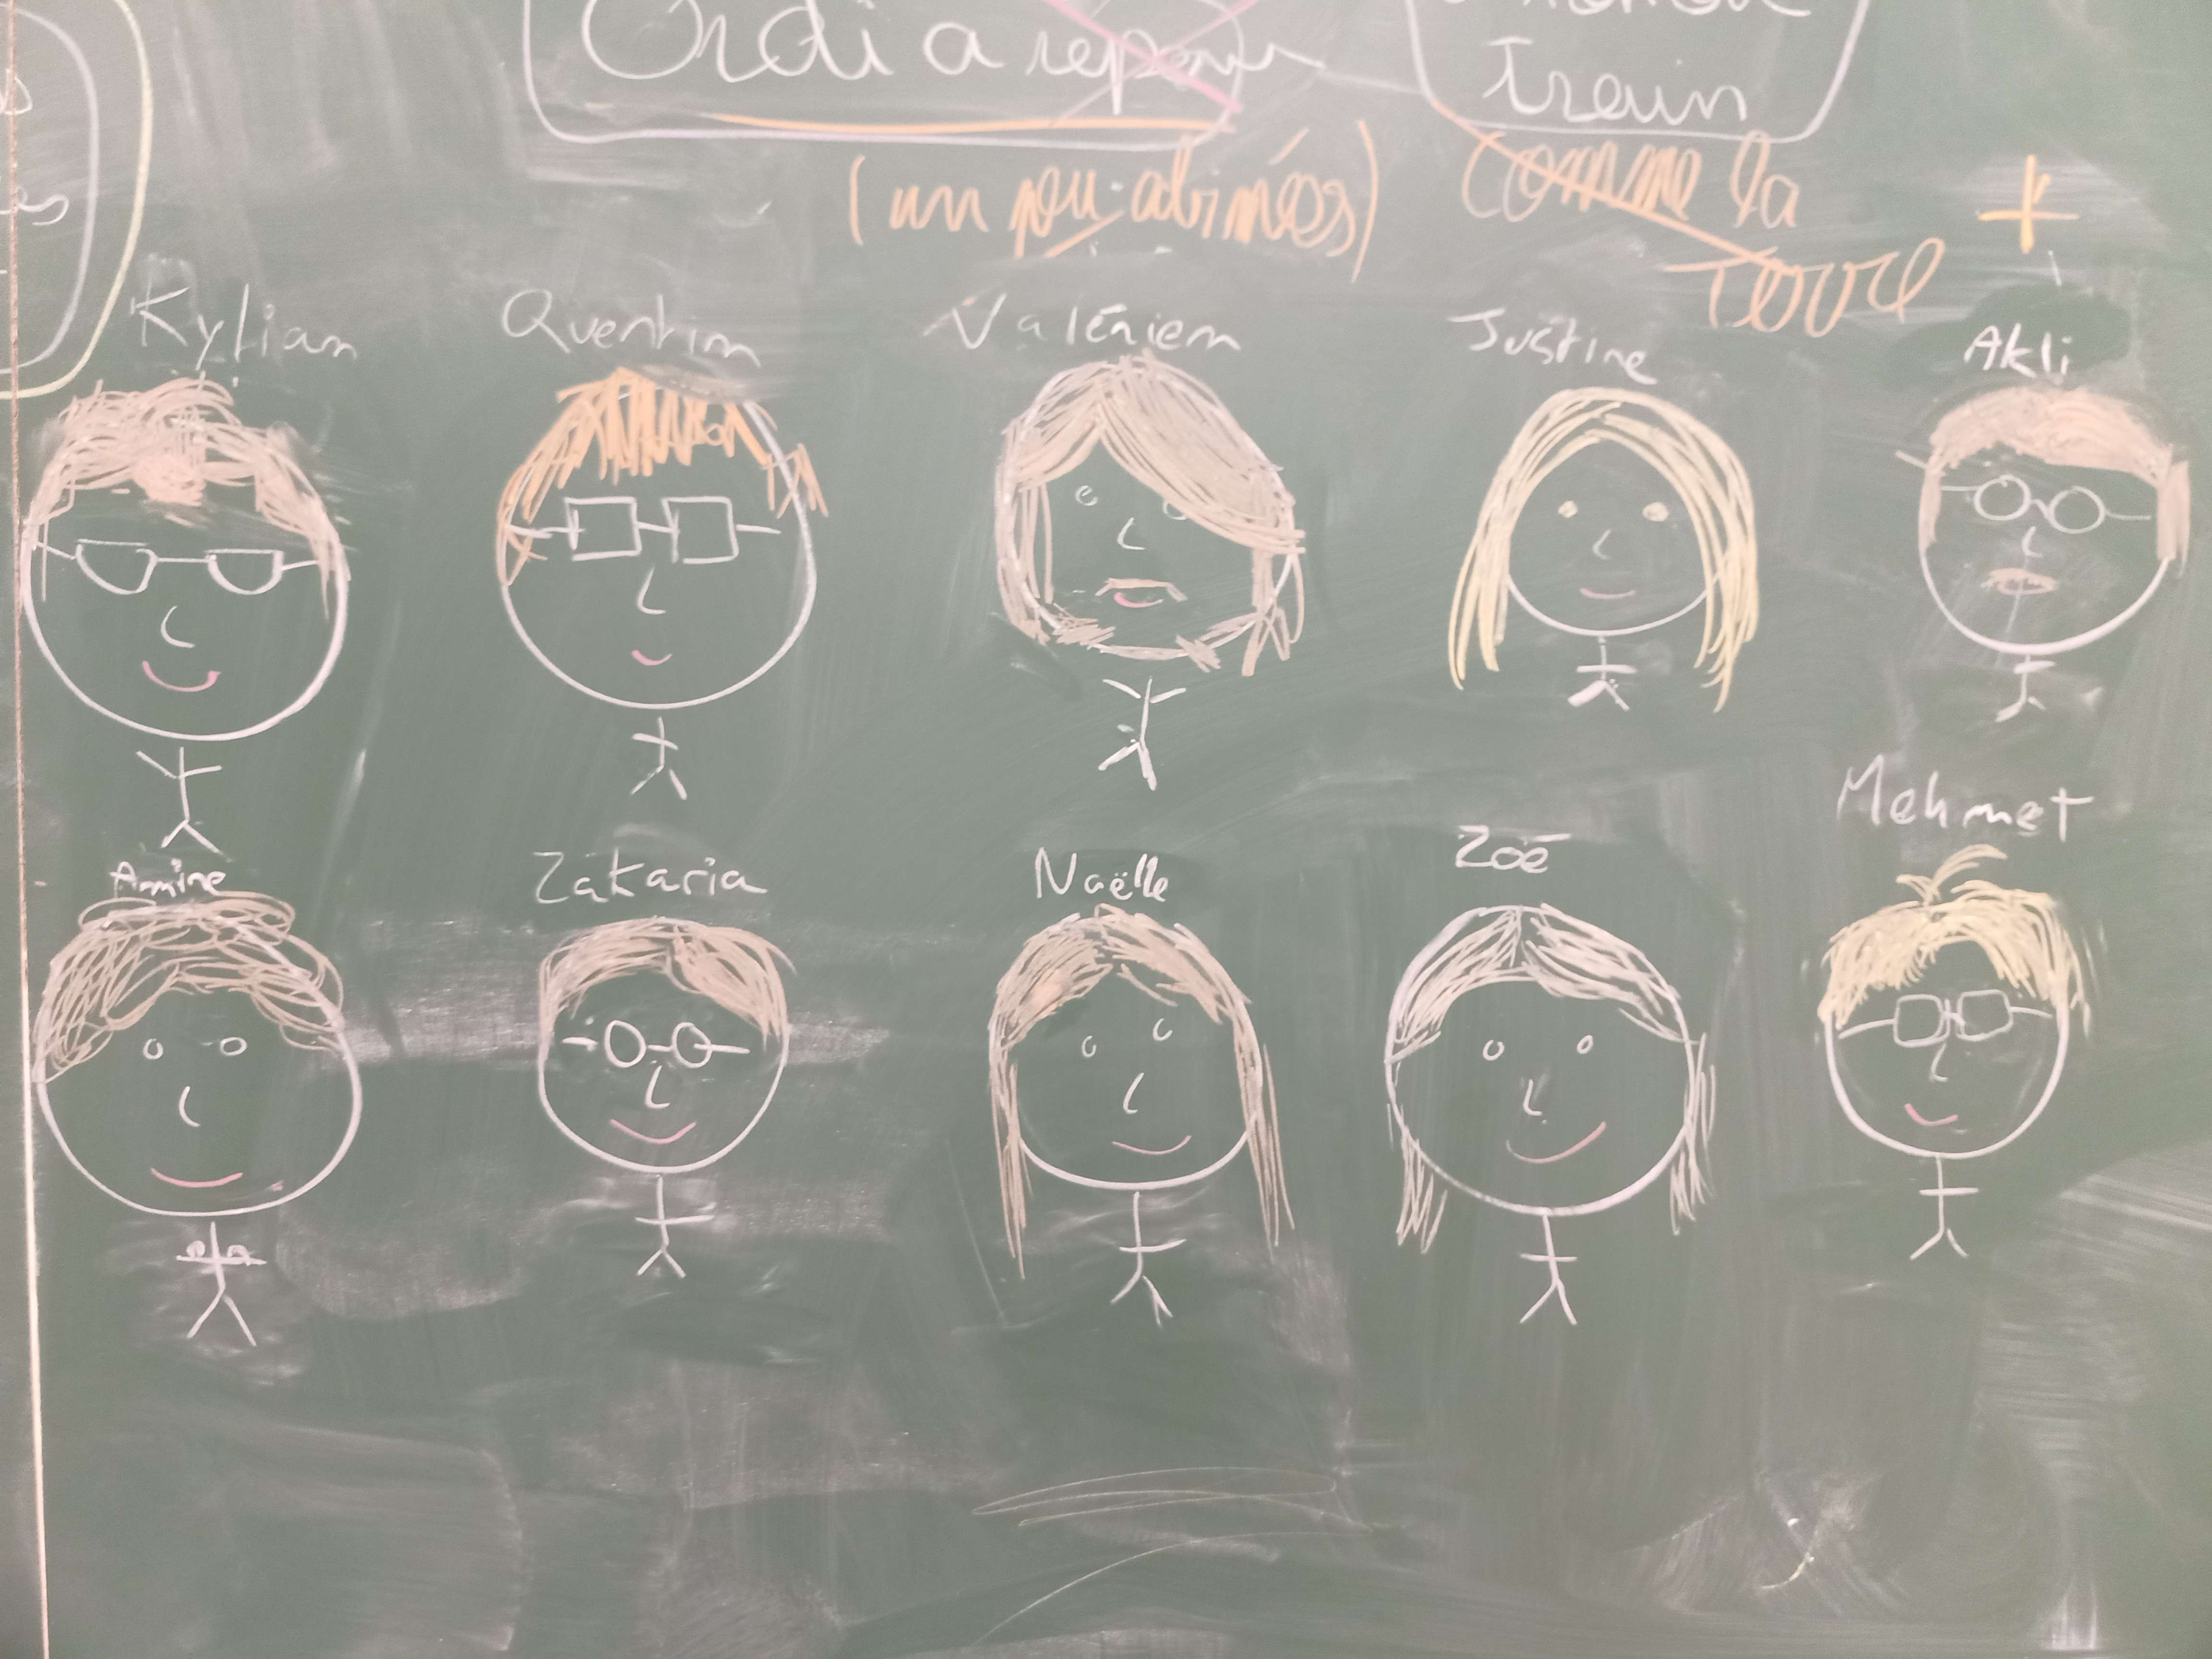 Ordi a repar
Train
(un peu abimés)
comme la
Terre
+
Kylian
Quentin
Valérien
Justine
Akli
Amine
Zakaria
Naëlle
Zoé
Mehmet